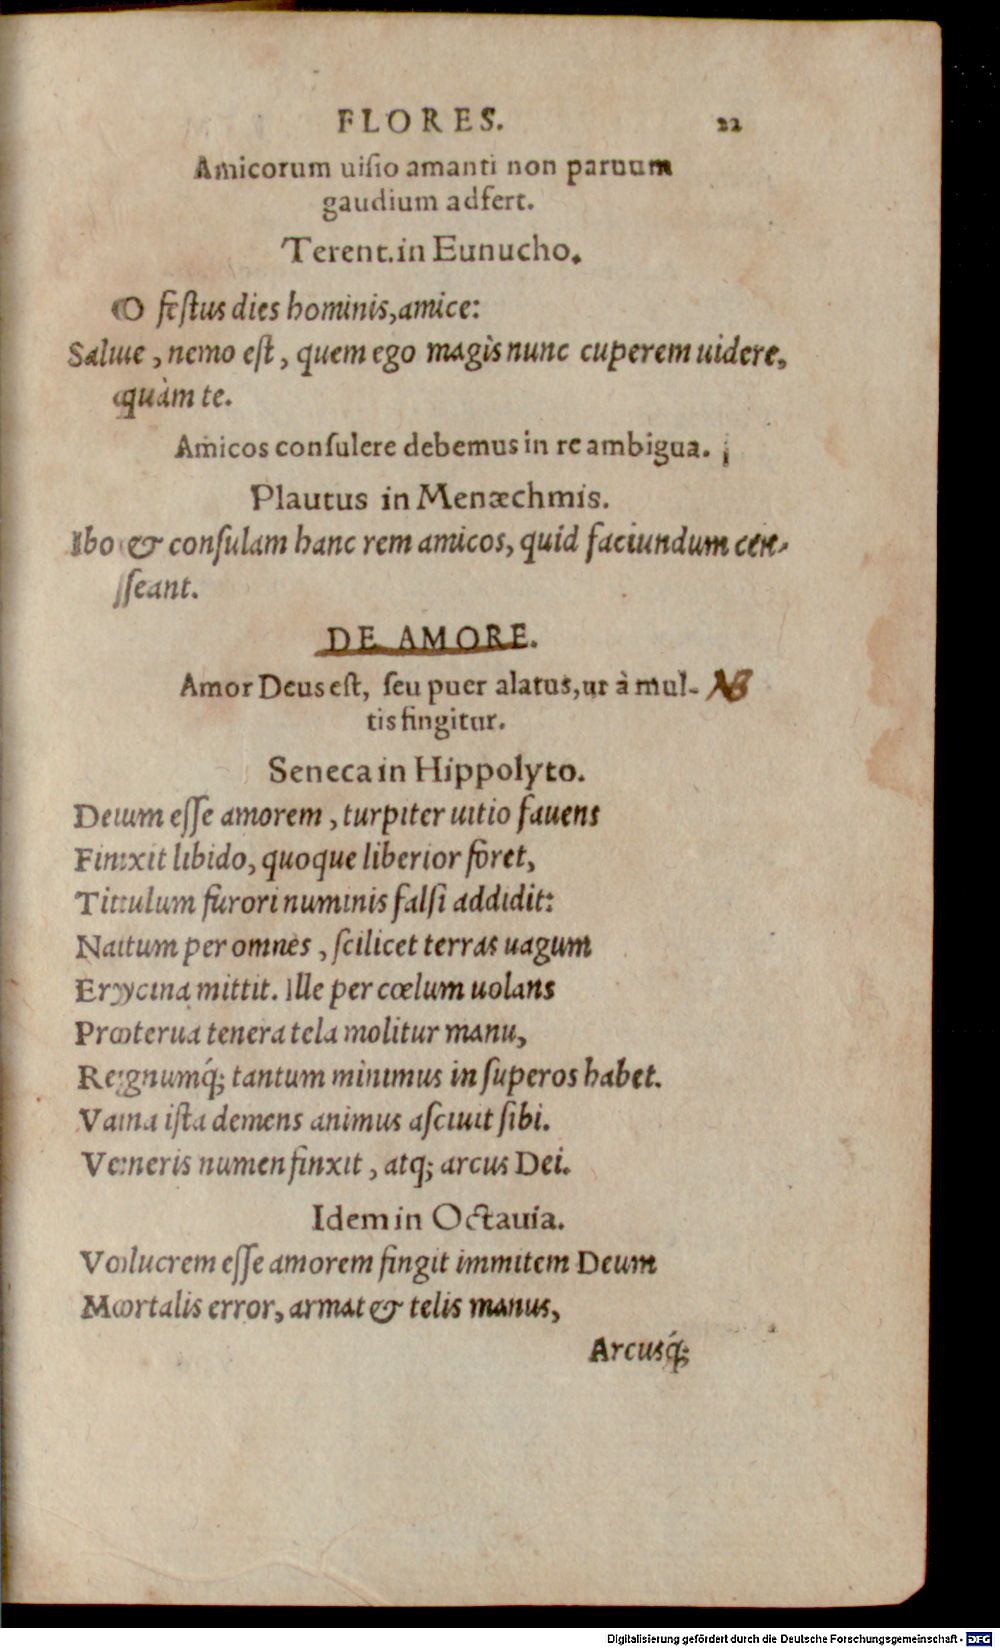 FLORES. 22
Amicorum uiſio amanti non paruum
gaudium adfert.
Terent. in Eunucho.
O feſtus dies hominis, amice:
Salue, nemo eſt, quem ego magìs nunc cuperem uidere,
quàm te.
Amicos conſulere debemus in re ambigua.
Plautus in Menæchmis.
Ibo & conſulam hanc rem amicos, quid faciundum cen-
ſeant.
DE AMORE.
Amor Deus eſt, ſeu puer alatus, ut à mul- NB
tis fingitur.
Seneca in Hippolyto.
Deum eſſe amorem, turpiter uitio fauens
Finxit libido, quoque liberior foret,
Titulum furori numinis falſi addidit:
Natum per omnes, ſcilicet terras uagum
Erycina mittit. Ille per cœlum uolans
Proterua tenera tela molitur manu,
Regnumq́; tantum minimus in ſuperos habet.
Vana iſta demens animus aſciuit ſibi.
Veneris numen finxit, atq; arcus Dei.
Idem in Octauia.
Volucrem eſſe amorem fingit immitem Deum
Mortalis error, armat & telis manus,
Arcusq́;
Digitalisierung gefördert durch die Deutsche Forschungsgemeinschaft - DFG